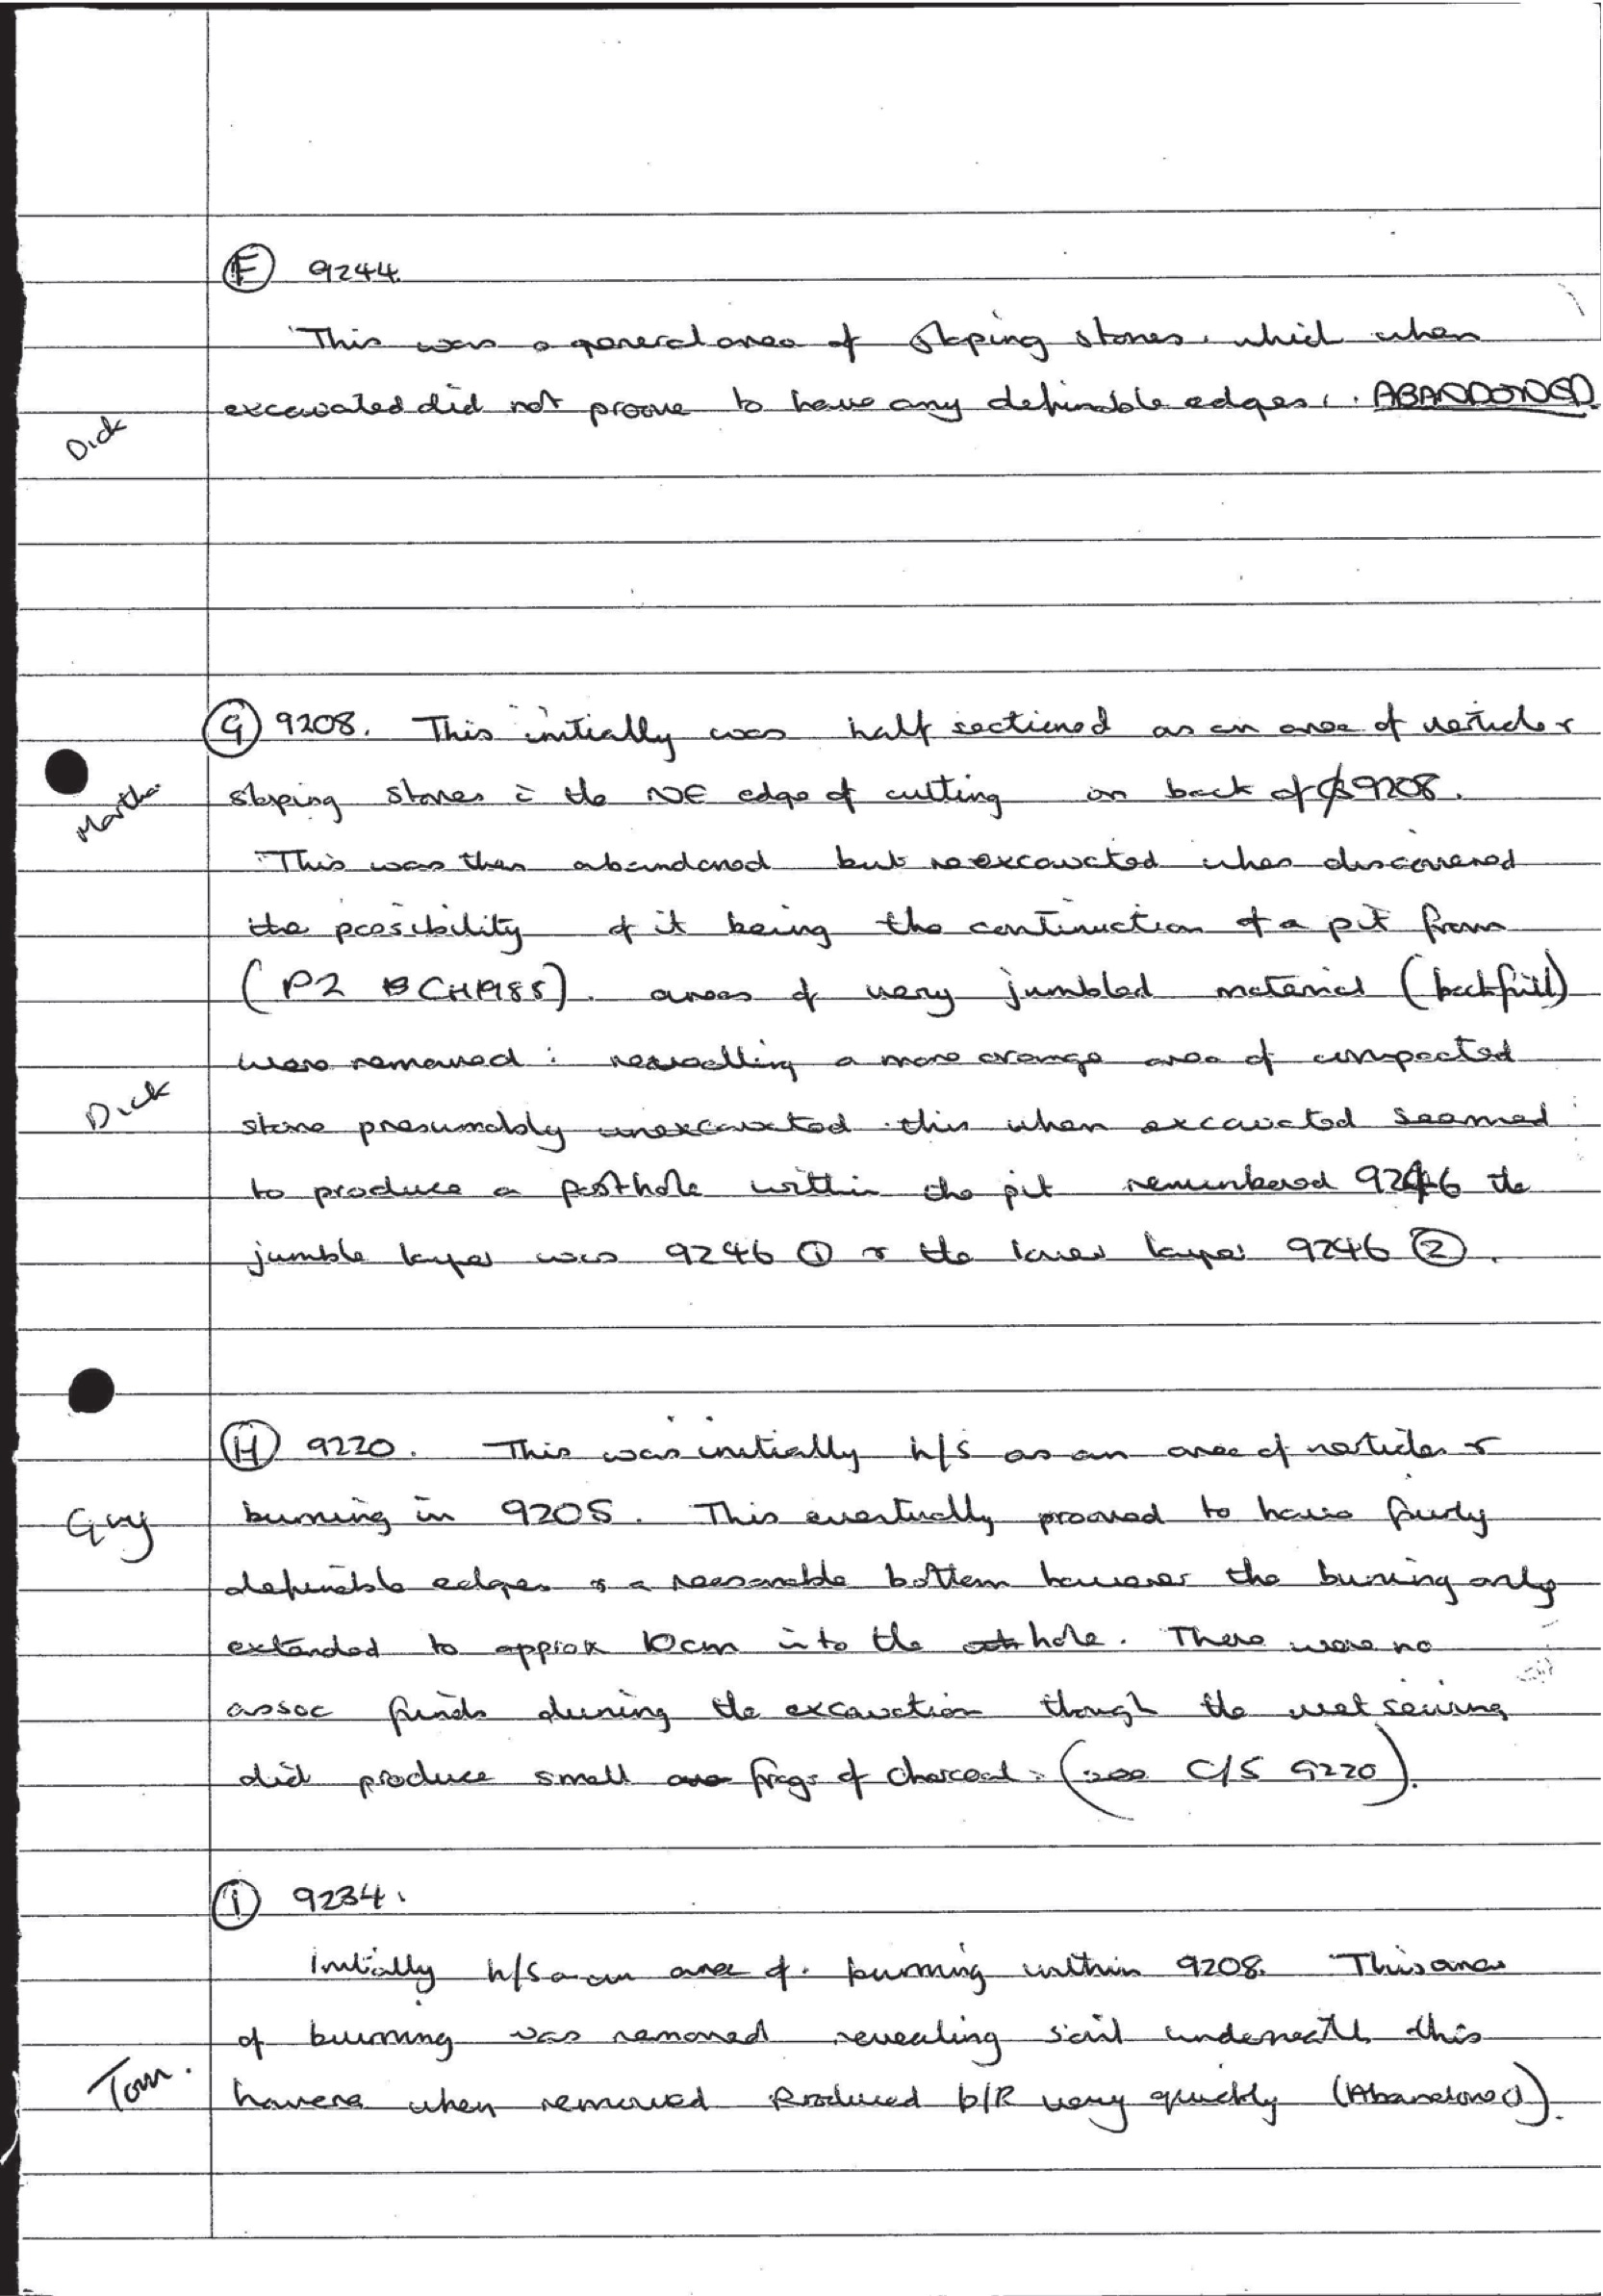 (F) 9244.
This was a general area of sloping stones. which when
excavated did not proove to have any definable edges, . ABANDONED.
Dick
(G) 9208. This initially was half sectioned as an area of verticle &
Martha
sloping stones in the NE edge of cutting on back of 9208.
This was then abandoned but reexcavated when discovered
the possibility of it being the continuction of a pit from
(P2 BCH1985). areas of very jumbled material (backfill)
were removed : revealling a more orange area of compacted
Dick
stone presumably unexcavated this when excavated seemed
to produce a posthole within the pit renumbered 9246 the
jumble layer was 9246 (1) & the lower layer 9246 (2).
(H) 9220. This was initially h/s as an area of verticles &
Guy
burning in 9205. This eventually prooved to have fairly
definable edges & a reasonable bottom however the burning only
extended to approx 10cm into the hole. There were no
assoc finds during the excavation though the wet seiving
did produce small frags of charcoal. (see C/S 9220).
(I) 9234.
Initially h/s a an area of. burning within 9208. This area
of burning was removed revealing soil underneath this
Tom.
however when removed produced b/R very quickly (Abandoned).